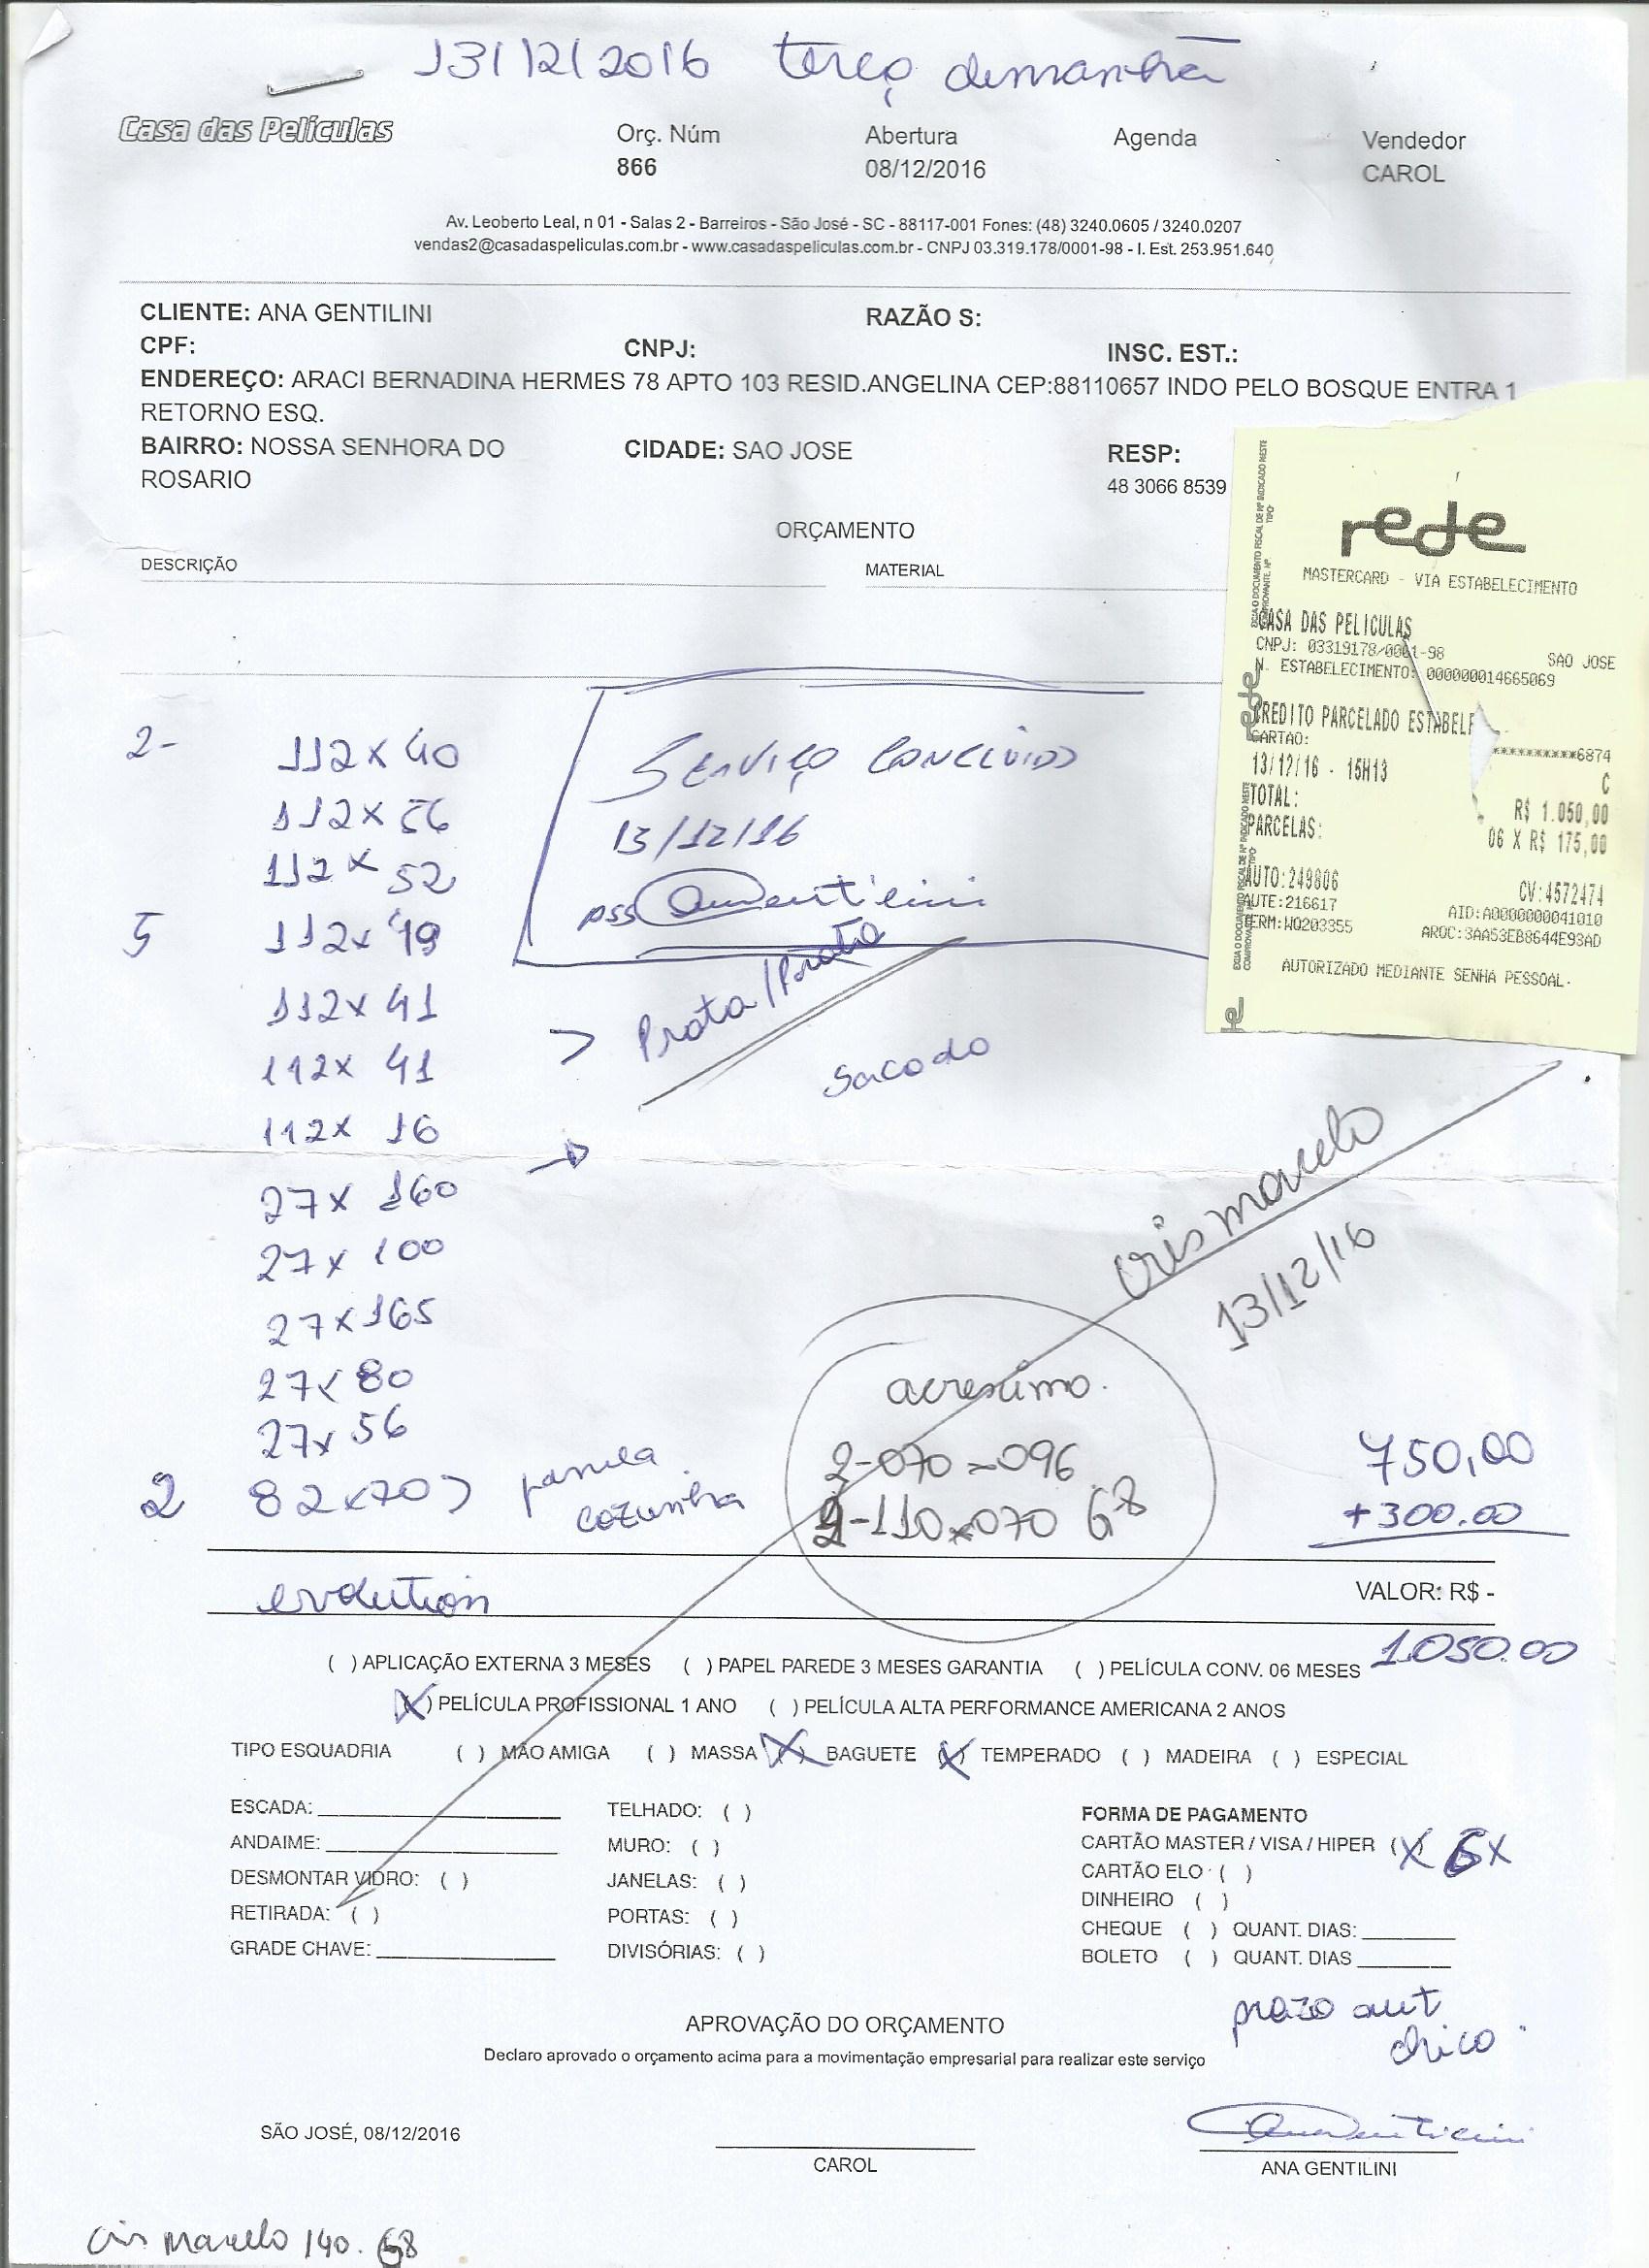 13/12/2016 terça demanhã
Casa das Películas
Orç. Núm Abertura Agenda Vendedor
866 08/12/2016 CAROL
Av. Leoberto Leal, n 01 - Salas 2 - Barreiros - São José - SC - 88117-001 Fones: (48) 3240.0605 / 3240.0207
vendas2@casadaspeliculas.com.br - www.casadaspeliculas.com.br - CNPJ 03.319.178/0001-98 - I. Est. 253.951.640
CLIENTE: ANA GENTILINI RAZÃO S:
CPF: CNPJ: INSC. EST.:
ENDEREÇO: ARACI BERNADINA HERMES 78 APTO 103 RESID.ANGELINA CEP:88110657 INDO PELO BOSQUE ENTRA 1
RETORNO ESQ.
BAIRRO: NOSSA SENHORA DO CIDADE: SAO JOSE RESP:
ROSARIO 48 3066 8539
ORÇAMENTO
DESCRIÇÃO MATERIAL
rede
MASTERCARD - VIA ESTABELECIMENTO
CASA DAS PELICULAS
CNPJ: 03319178/0001-98 SAO JOSE
N. ESTABELECIMENTO: 000000014665069
CREDITO PARCELADO ESTABELE
CARTAO: **********6874
13/12/16 - 15H13 C
TOTAL: R$ 1.050,00
PARCELAS: 06 X R$ 175,00
AUTO:249806 CV:4572474
AUTE:216617 AID:A0000000041010
TERM:WQ203355 ARQC:3AA53EB8644E93AD
AUTORIZADO MEDIANTE SENHA PESSOAL.
2- 112 x 40
112 x 56
112 x 52
5 112 x 49
112 x 41
112 x 41
112 x 16
27 x 160
27 x 100
27 x 165
27 x 80
27 x 56
2 82 x 70 > janela
cozinha
SERVIÇO CONCLUIDO
13/12/16
ass Gentilini
> Prata/Prata
Sacada
cris marcelo
13/12/16
acresimo.
2-070 x 096
2-110 x 070 G8
750,00
+300.00
evolution VALOR: R$ -
1.050.00
( ) APLICAÇÃO EXTERNA 3 MESES ( ) PAPEL PAREDE 3 MESES GARANTIA ( ) PELÍCULA CONV. 06 MESES
(X) PELÍCULA PROFISSIONAL 1 ANO ( ) PELÍCULA ALTA PERFORMANCE AMERICANA 2 ANOS
TIPO ESQUADRIA ( ) MÃO AMIGA ( ) MASSA (X) BAGUETE (X) TEMPERADO ( ) MADEIRA ( ) ESPECIAL
ESCADA: TELHADO: ( )
ANDAIME: MURO: ( )
DESMONTAR VIDRO: ( ) JANELAS: ( )
RETIRADA: ( ) PORTAS: ( )
GRADE CHAVE: DIVISÓRIAS: ( )
FORMA DE PAGAMENTO
CARTÃO MASTER / VISA / HIPER (X) 6x
CARTÃO ELO ( )
DINHEIRO ( )
CHEQUE ( ) QUANT. DIAS:
BOLETO ( ) QUANT. DIAS
prazo aut
chico
APROVAÇÃO DO ORÇAMENTO
Declaro aprovado o orçamento acima para a movimentação empresarial para realizar este serviço
SÃO JOSÉ, 08/12/2016
CAROL ANA GENTILINI
cris Marcelo 140. G8